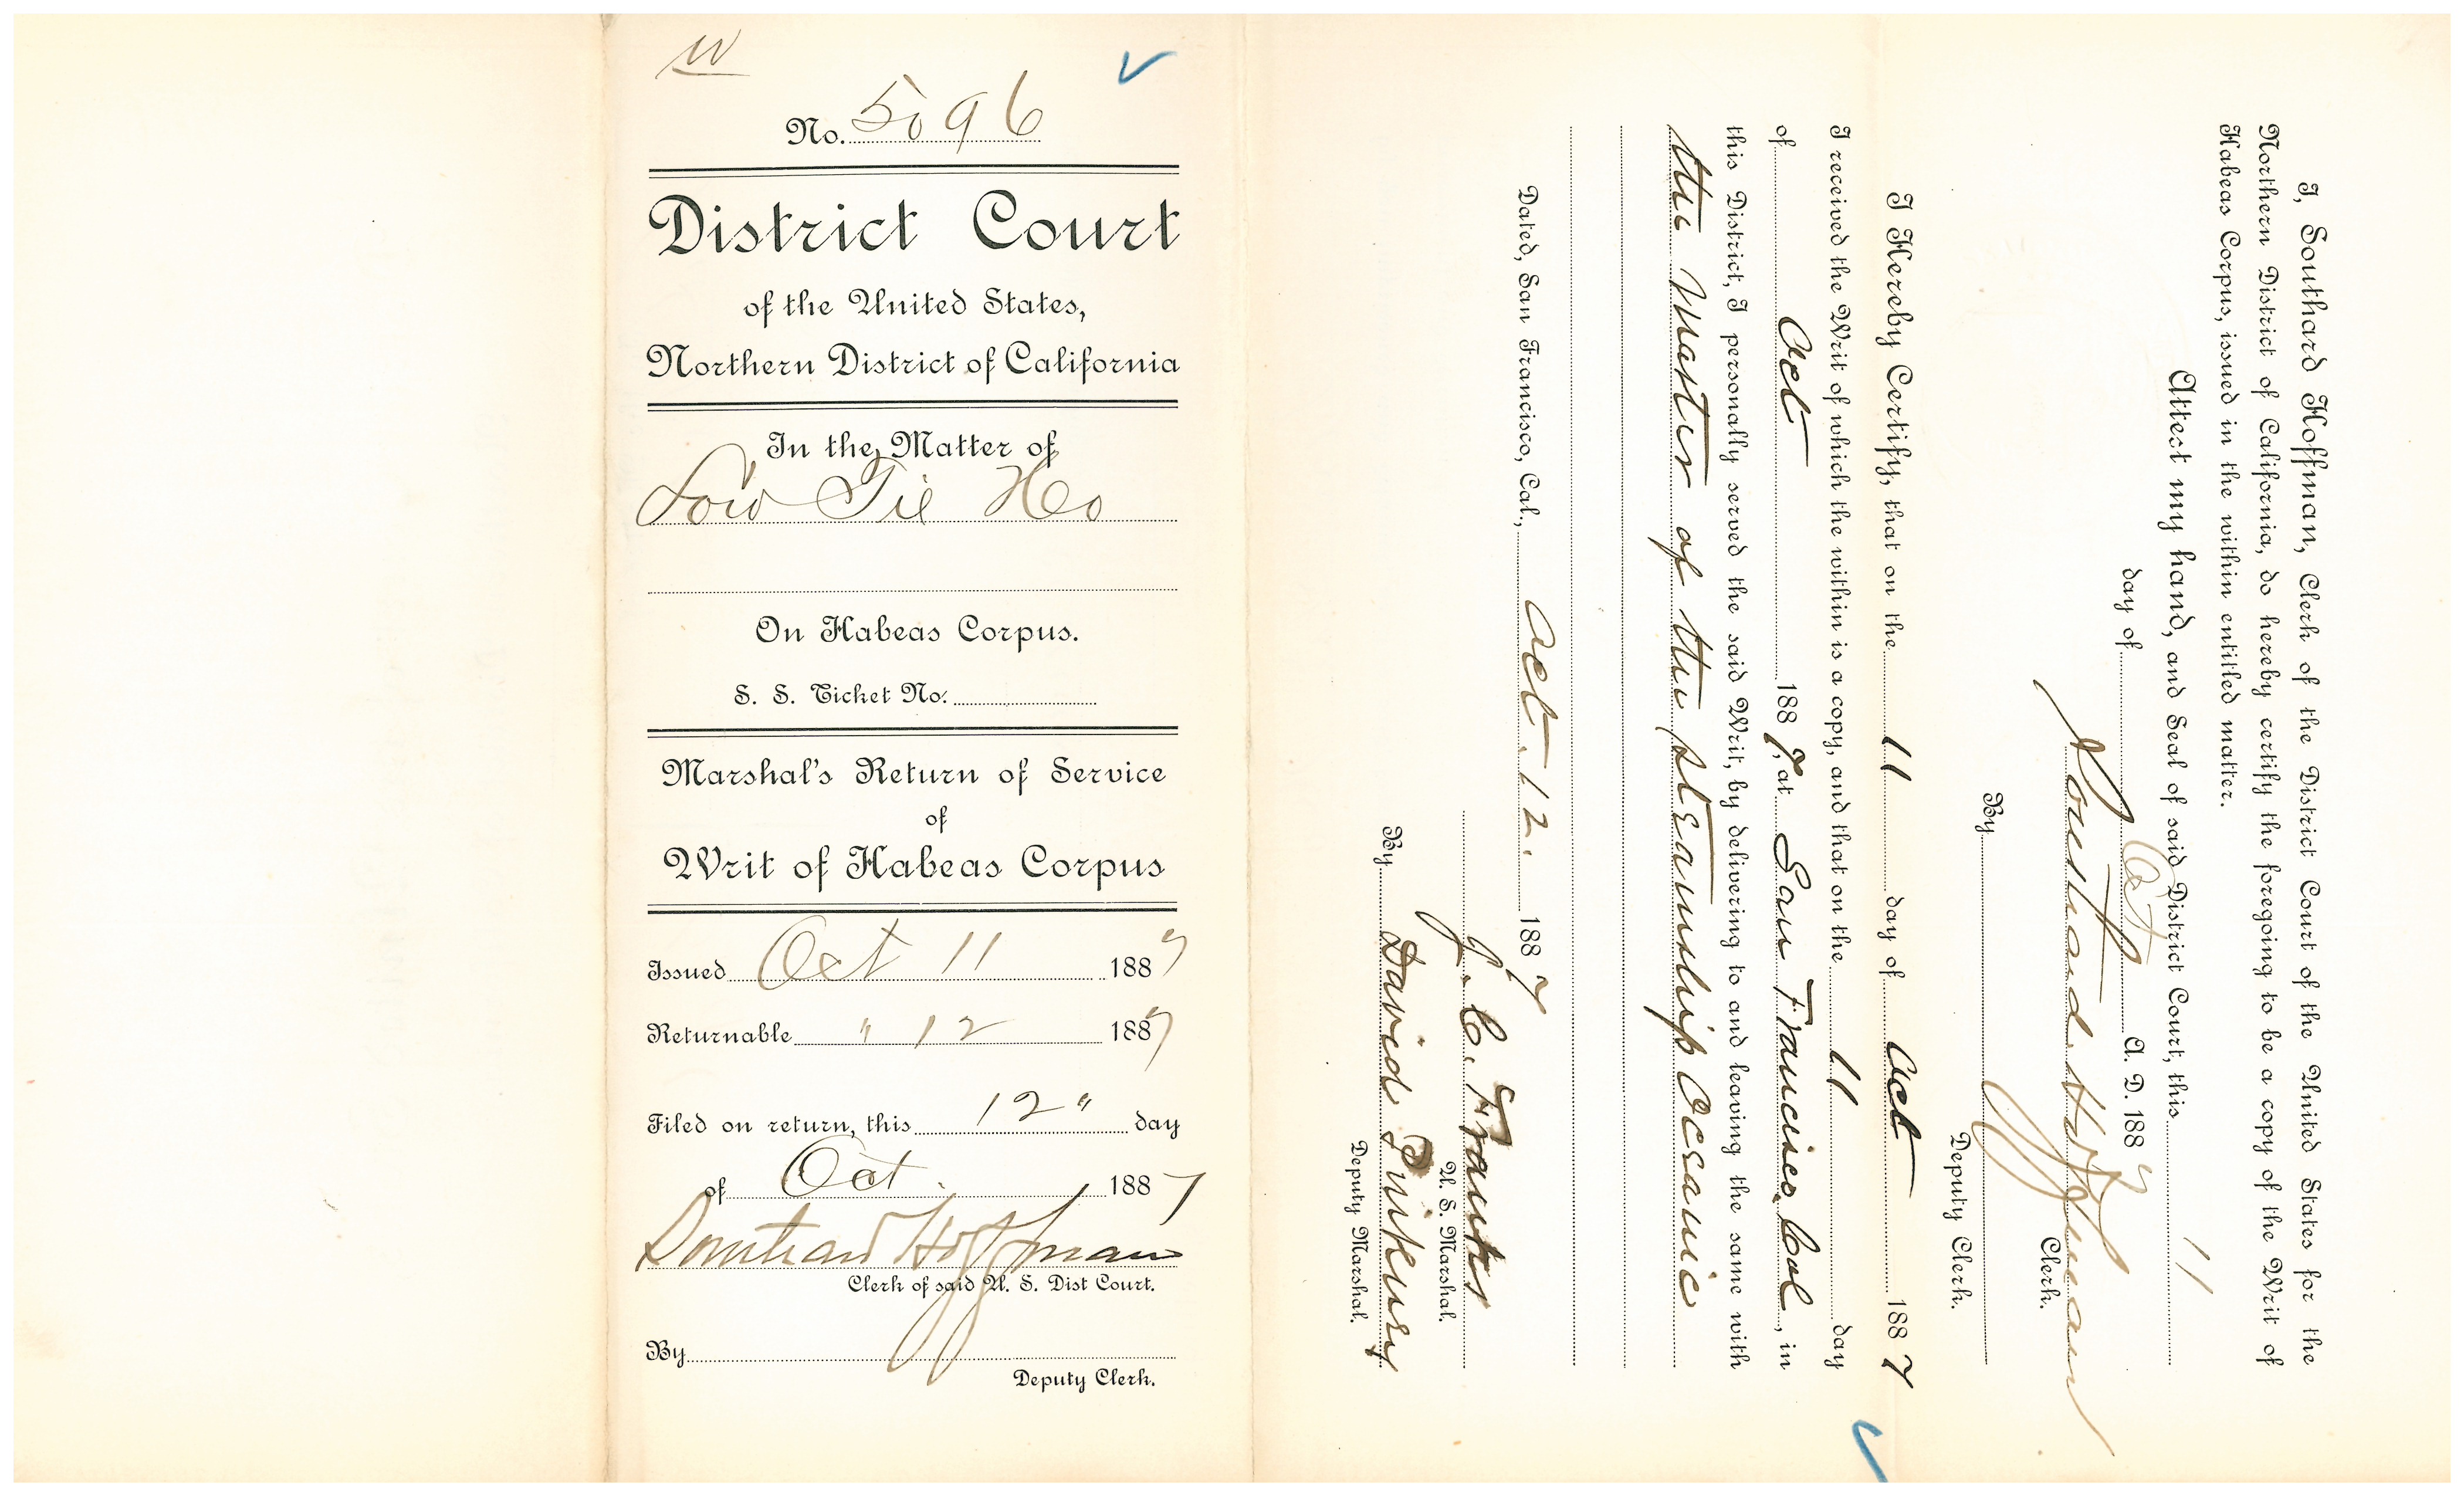 W
No. 5096
District Court
of the United States,
Northern District of California
In the Matter of
Low Tie Ho
On Habeas Corpus.
S. S. Ticket No.
Marshal's Return of Service
of
Writ of Habeas Corpus
Issued Oct 11 1887
Returnable " 12 1887
Filed on return, this 12" day
of Oct. 1887
Southard Hoffman
Clerk of said U. S. Dist Court.
By
Deputy Clerk.
I, Southard Hoffman, Clerk of the District Court of the United States for the
Northern District of California, do hereby certify the foregoing to be a copy of the Writ of
Habeas Corpus, issued in the within entitled matter.
Attest my hand, and Seal of said District Court, this 11
day of Oct A. D. 1887
Southard Hoffman
Clerk.
By
Deputy Clerk.
I Hereby Certify, that on the 11 day of Oct 1887
I received the Writ of which the within is a copy, and that on the 11 day
of Oct 1887, at San Francisco, Cal, in
this District, I personally served the said Writ, by delivering to and leaving the same with
the master of the steamship Oceanic
Dated, San Francisco, Cal., Oct. 12. 1887
J. C. Franks
U. S. Marshal.
By David
Deputy Marshal.